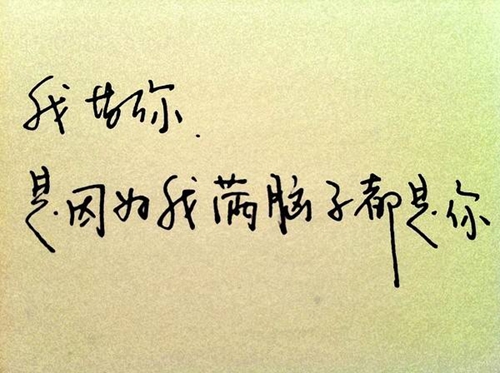 我昔你.
是因为我满脑子都是你